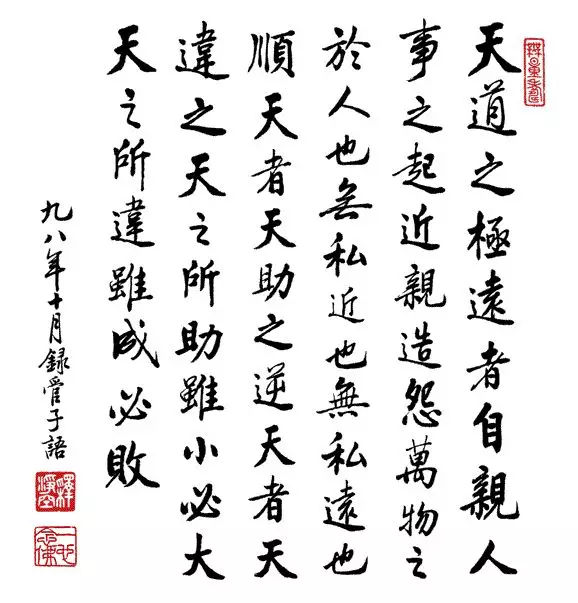 天道之極遠者自親人
事之起近親造怨萬物之
於人也無私近也無私遠也
順天者天助之逆天者天
違之天之所助雖小必大
天之所違雖成必敗
九八年十月録管子語
釋淨空
一心念佛